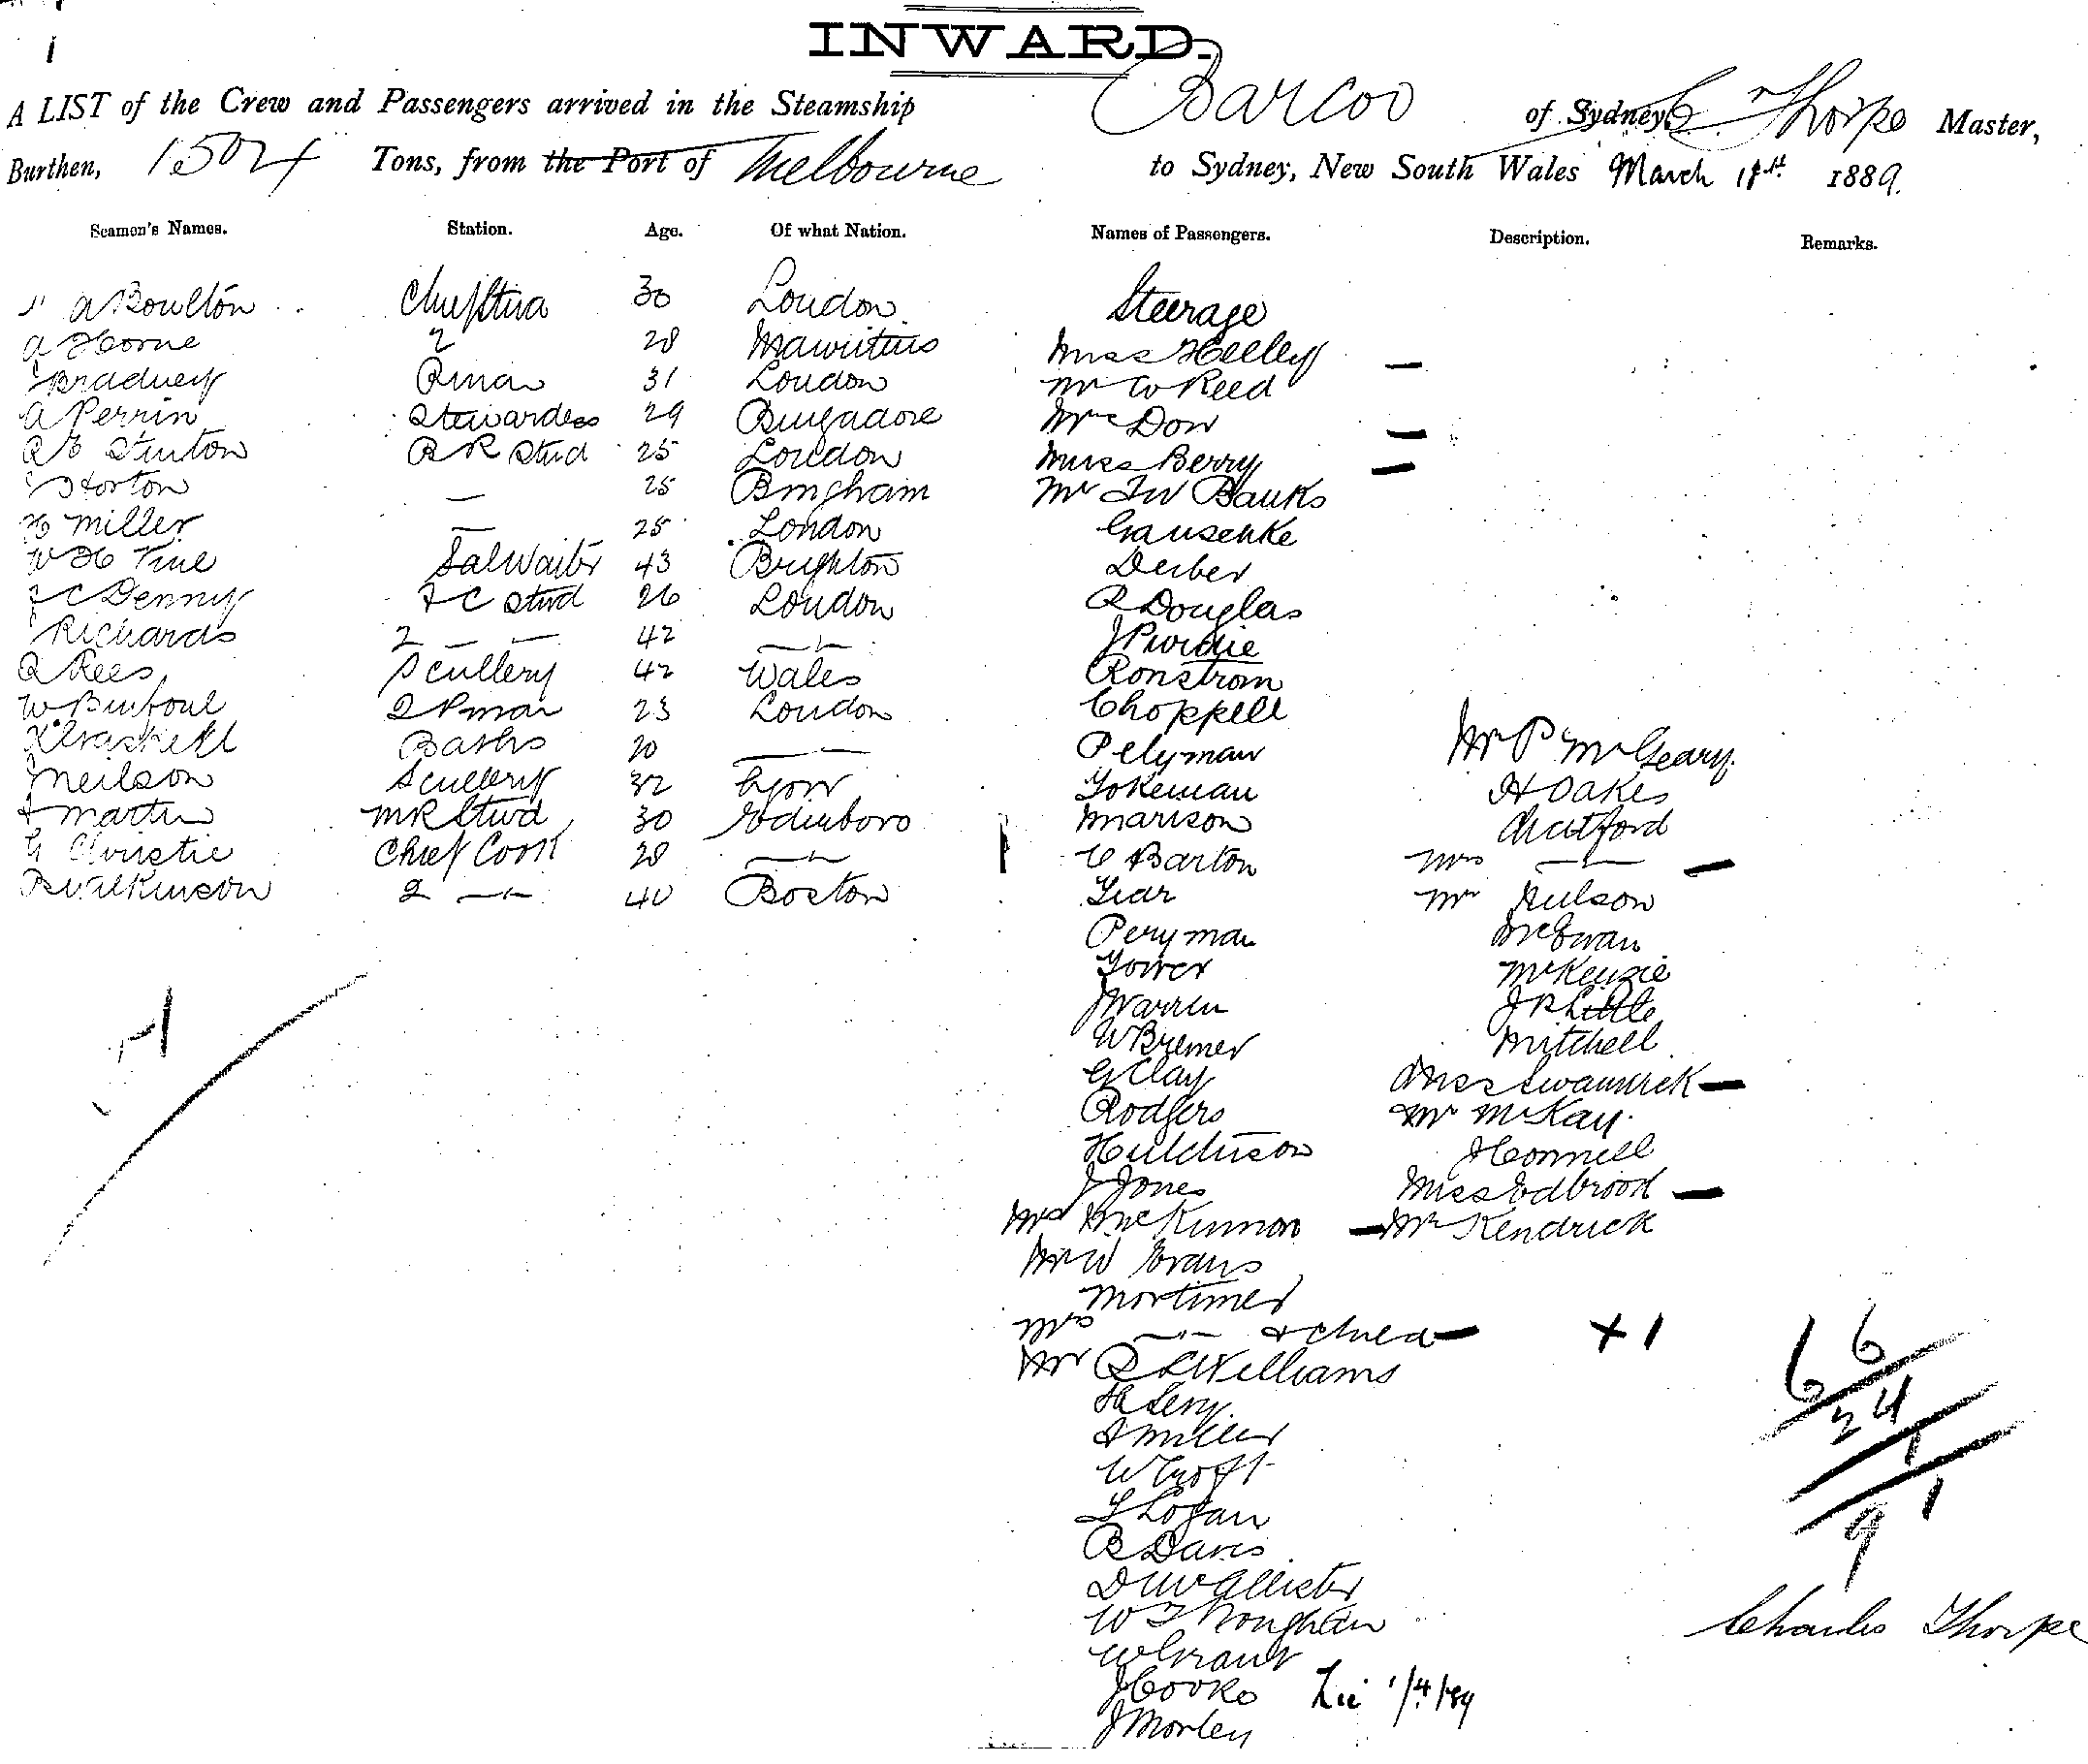 INWARD.
A LIST of the Crew and Passengers arrived in the Steamship Barcoo of Sydney, C Thorpe Master,
Burthen, 1504 Tons, from the Port of Melbourne to Sydney, New South Wales March 1889.
Seamen's Names. Station. Age. Of what Nation. Names of Passengers. Description. Remarks.
A Boulton 30 London
A Horne 2 28 Mauritius
Bradney Pman 31 London
A Perrin Stewardess 29
Stinton B R Stud 25 London
Horton — 25 Bmgham
H Miller — 25 London
W H Vine Sal Waiter 43 Brighton
C Denny F C Stwd 26 London
Richards 2 — — 42 —"—
R Rees Scullery 42 Wales
W 2 Pman 23 London
Baths 20 ———
J Neilson Scullery 32
Martin M R Stwd 30 Edinboro
G Christie Chief Cook 28 —"—
B Wilkinson 2 —"— 40 Boston
Steerage
Miss Kelley —
Mr W Reed
Mrs Dow —
Miss Berry —
Mr Banks
Gauschke
R Douglas
J Purdie
Ronstrom
Choppell
Pelyman
Yokeman
Marison
C Barton
Liar
Peryman
Tower
J Warren
W Bremer
G Clay
Rodgers
Hutchison
J Jones
Mrs McKinnon —
Mr W Evans
Mortimer
Mrs —"— & child — + 1
Mr R L Williams
H Levy
Miller
W Croft
Logan
B Davis
D McAllister
W
W Grant
J Cooke
J Morley
Mr P McGeary
H Oakes
Chatford
Mrs —"— —
Mr Neilson
McEwan
McKenzie
J R Little
Mitchell
Miss Swanwick —
Mr McKay
J Connell
Miss Edbrook —
Mr Kendrick
66
24
1
91
Charles Thorpe
1/4/89